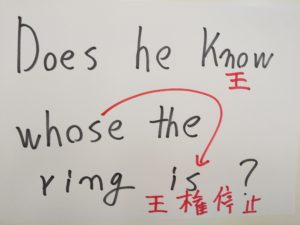 Does he know
王
whose the
ring is ?
王権停止